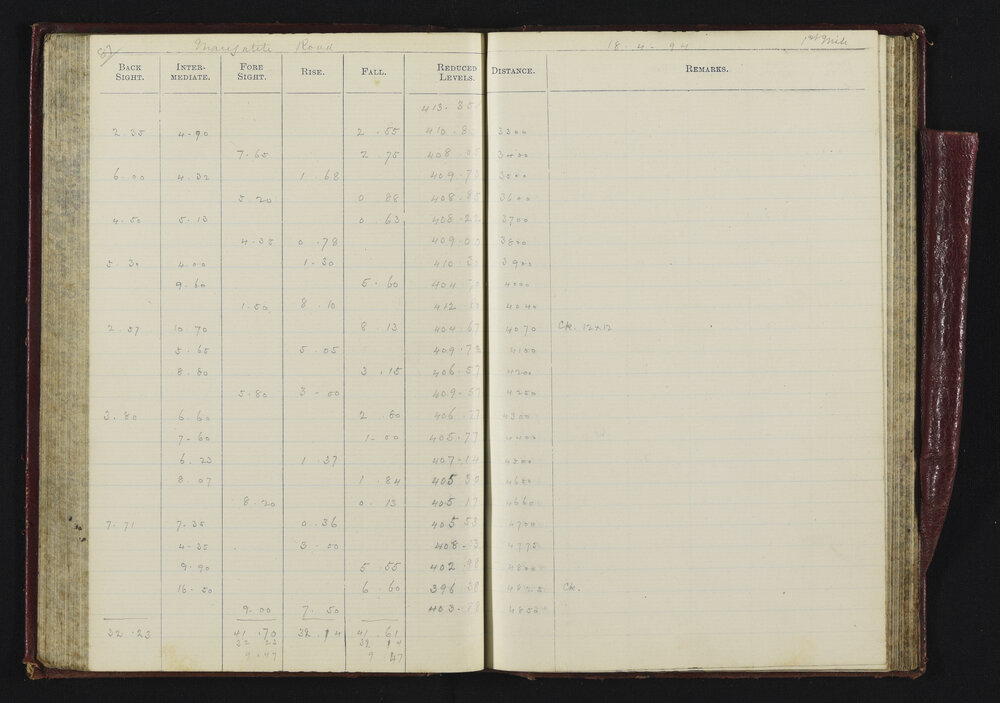 Road 18-4-94 1st Mile
BACK SIGHT. INTER-MEDIATE. FORE SIGHT. RISE. FALL. REDUCED LEVELS. DISTANCE. REMARKS.
2.35 4.90 2.55 3300
7.65 2.75 3400
6.00 4.32 1.68
5.20 0.88 3600
4.50 5.13 0.63 3700
4.35 0.78 3800
5.30 4.00 1.30 3900
9.60 5.60 4000
1.50 8.10 4040
2.57 10.70 8.13 404.67 4070 Ck. 12x12
5.65 5.05 409.72 4100
8.80 3.15 406.57 4200
5.80 3.00 409.57 4250
3.80 6.60 2.80 406.77 4300
7.60 1.00 405.77 4400
6.23 1.37 407.14 4500
8.07 1.84 405.30
8.20 0.13 405.17 4660
7.71 7.35 0.36 405.53 4700
4.35 3.00 4775
9.90 5.55 402.98 4800
16.50 6.60 396.38 4825 Ck.
9.00 7.50 4852
32.23 41.70 32.14 41.61
32 23 32 14
9.47 9.47